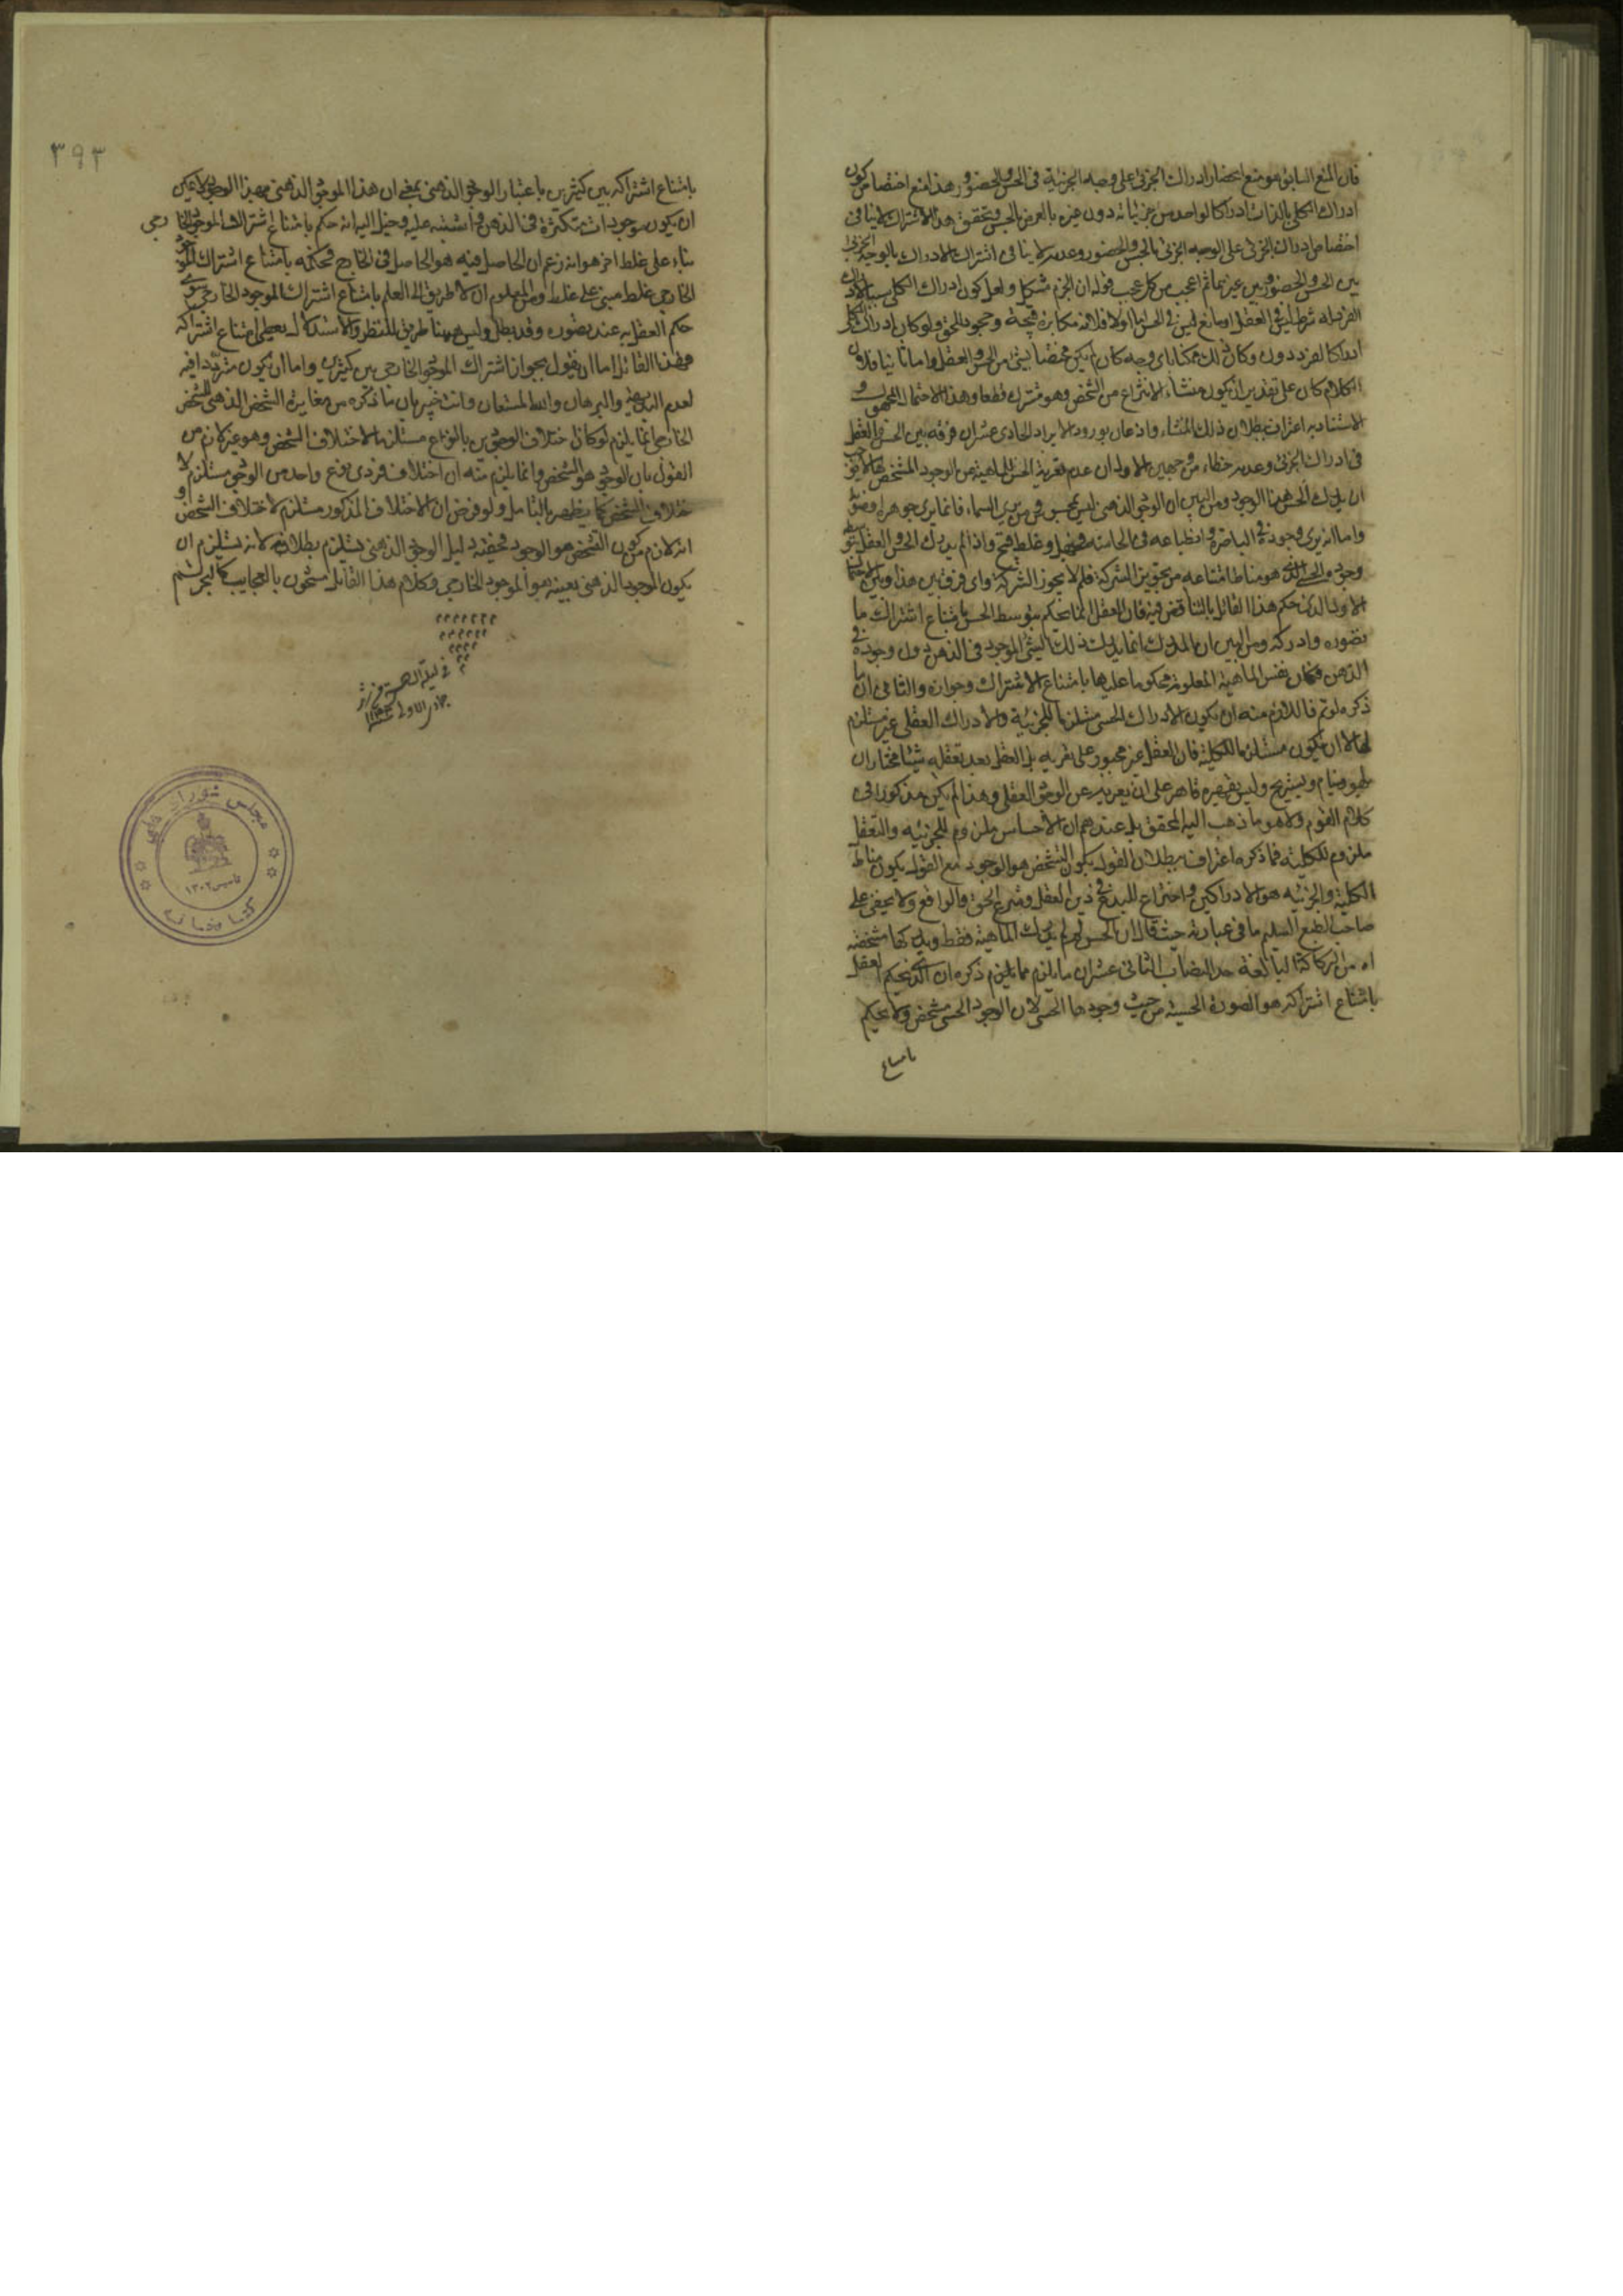 فان المنع السابق هو منع انحصار ادراك الجزئى على وجه الجزئية فى الحس والحضور وهذا منع اختصاص كون
ادراك الكلى بالذات ادراكا لواحد من جزئياته دون غيره بالعرض بالحس وتحقق هذا الاشتراك لا ينافى
اختصاص ادراك الجزئى على الوجه الجزئى بالحس والحضور وعدمه لا ينافى اشتراك الادراك بالوجه الجزئى
بين الحس والحضور وبين غيرهما ثم اعجب من كل عجب قوله ان الجزم مشكل ولعل كون ادراك الكلى سببا لادراك
الفرد له شرط ليس فى العقل او مانع ليس فى الحس اما اولا فلانه مكابرة قبيحة وجحود للحق ولو كان ادراك الكلى
ادراكا لفرد دون وكان ذلك ممكنا باى وجه كان لم يكن مختصا بشئ من الحس والعقل واما ثانيا فلان
الكلام كان على تقدير ان يكون منشاء الانتزاع من الشخص وهو مشترك قطعا وهذا الاحتمال المجهول و
الاستناد به اعتراف ببطلان ذلك المنشاء واذعان بورود الايراد الحادى عشر ان فرقه بين الحس والعقل
فى ادراك الجزئى وعدمه خطاء من وجهين الاول ان عدم تعرية الحس للماهية عن الوجود المشخص لها لا يوجب
ان يدرك الحس هذا الوجود ومن البين ان الوجود الذهنى ليس بمحسوس فمن يرى السماء فانما يرى جوهرا وضوء
واما انه يرى وجوده فى الباصرة وانطباعه فى الحاسة فجهل وغلط قبيح واذا لم يدرك الحس والعقل بتوسطه
وجوده الحسى الذى هو مناط امتناعه من تجويز الشركة فلم لا يجوز الشركة واى فرق بين هذا وبين الاحتمال
الاول الذى حكم هذا القائل بالتناقض فيه فان العقل انما يحكم بتوسط الحس بامتناع اشتراك ما
تصوره وادركه ومن البين ان المدرك انما يدرك ذلك الشئ الموجود فى الذهن دون وجوده فى
الذهن فكان نفس الماهية المعلومة محكوما عليها بامتناع الاشتراك وجوازه والثانى ان ما
ذكره لو تم فاللازم منه ان يكون الادراك الحسى مستلزما للجزئية والادراك العقلى غير مستلزم
لها لا ان يكون مستلزما للكلية فان العقل غير مجبور على تعريه بل العقل بعد تعقله شيئا مختار ان
يلهو وينام ويستريح وليس يقهره قاهر على ان يعريه عن الوجود العقلى وهذا لم يكن مذكورا فى
كلام القوم ولا هو ما ذهب اليه المحقق بل عندهم ان الاحساس ملزوم للجزئيه والتعقل
ملزوم للكليه فما ذكره اعتراف ببطلان القول بكون التشخص هو الوجود مع القول بكون مناط
الكلية والجزئيه هو الادراكين واختراع للبدع فى دين العقل وشرع الحق والواقع ولا يخفى على
صاحب الطبع السليم ما فى عبارته حيث قال ان الحس لو لم يدرك الماهية فقط ويدركها مشخصة
اه من الركاكة البالغة حد النصاب الثانى عشر ان ما يلزم مما يلزم ذكره ان الذى يحكم العقل
بامتناع اشتراكه هو الصورة الحسية من حيث وجودها الحسى لان الوجود الحسى مشخص ولا يحكم
بامتناع
٣٩٣
بامتناع اشتراكه بين كثيرين باعتبار الوجود الذهنى بمعنى ان هذا الموجود الذهنى بهذا الوجود لا يمكن
ان يكون موجودات متكثرة فى الذهن واشتبه عليه وخيل اليه انه حكم بامتناع اشتراك الموجود الخارجى
بناء على غلط اخر هو انه زعم ان الحاصل فيه هو الحاصل فى الخارج فحكمه بامتناع اشتراك الموجود
الخارجى غلط مبنى على غلط ومن المعلوم ان لا طريق الى العلم بامتناع اشتراك الموجود الخارجى سوى
حكم العقل به عند تصوره وقد بطل وليس ههنا طريق للنظر والاستدلال يعطى امتناع اشتراكه
فهذا القائل اما ان يقول بجواز اشتراك الموجود الخارجى بين كثيرين واما ان يكون مترددا فيه
لعدم البديهة والبرهان والله المستعان وانت خبير بان ما ذكره من مغايرة الشخص الذهنى للشخص
الخارجى انما يلزم لو كان اختلاف الوجودين بالنوع مستلزما لاختلاف الشخص وهو غير لازم من
القول بان الوجود هو التشخص وانما يلزم منه ان اختلاف فردى نوع واحد من الوجود مستلزم لا
ختلاف الشخص كما يظهر بالتامل ولو فرض ان الاختلاف المذكور مستلزم لاختلاف الشخص و
انه لازم من كون التشخص هو الوجود فحقية دليل الوجود الذهنى يستلزم بطلانه لانه يستلزم ان
يكون الموجود الذهنى بعينه هو الموجود الخارجى وكلام هذا القائل مشحون بالعجايب كالبحر الخضم
فى ليلة
جمادى الاولى
مجلس شوراى ملى
تاسيس ١٣٠٢
كتابخانه